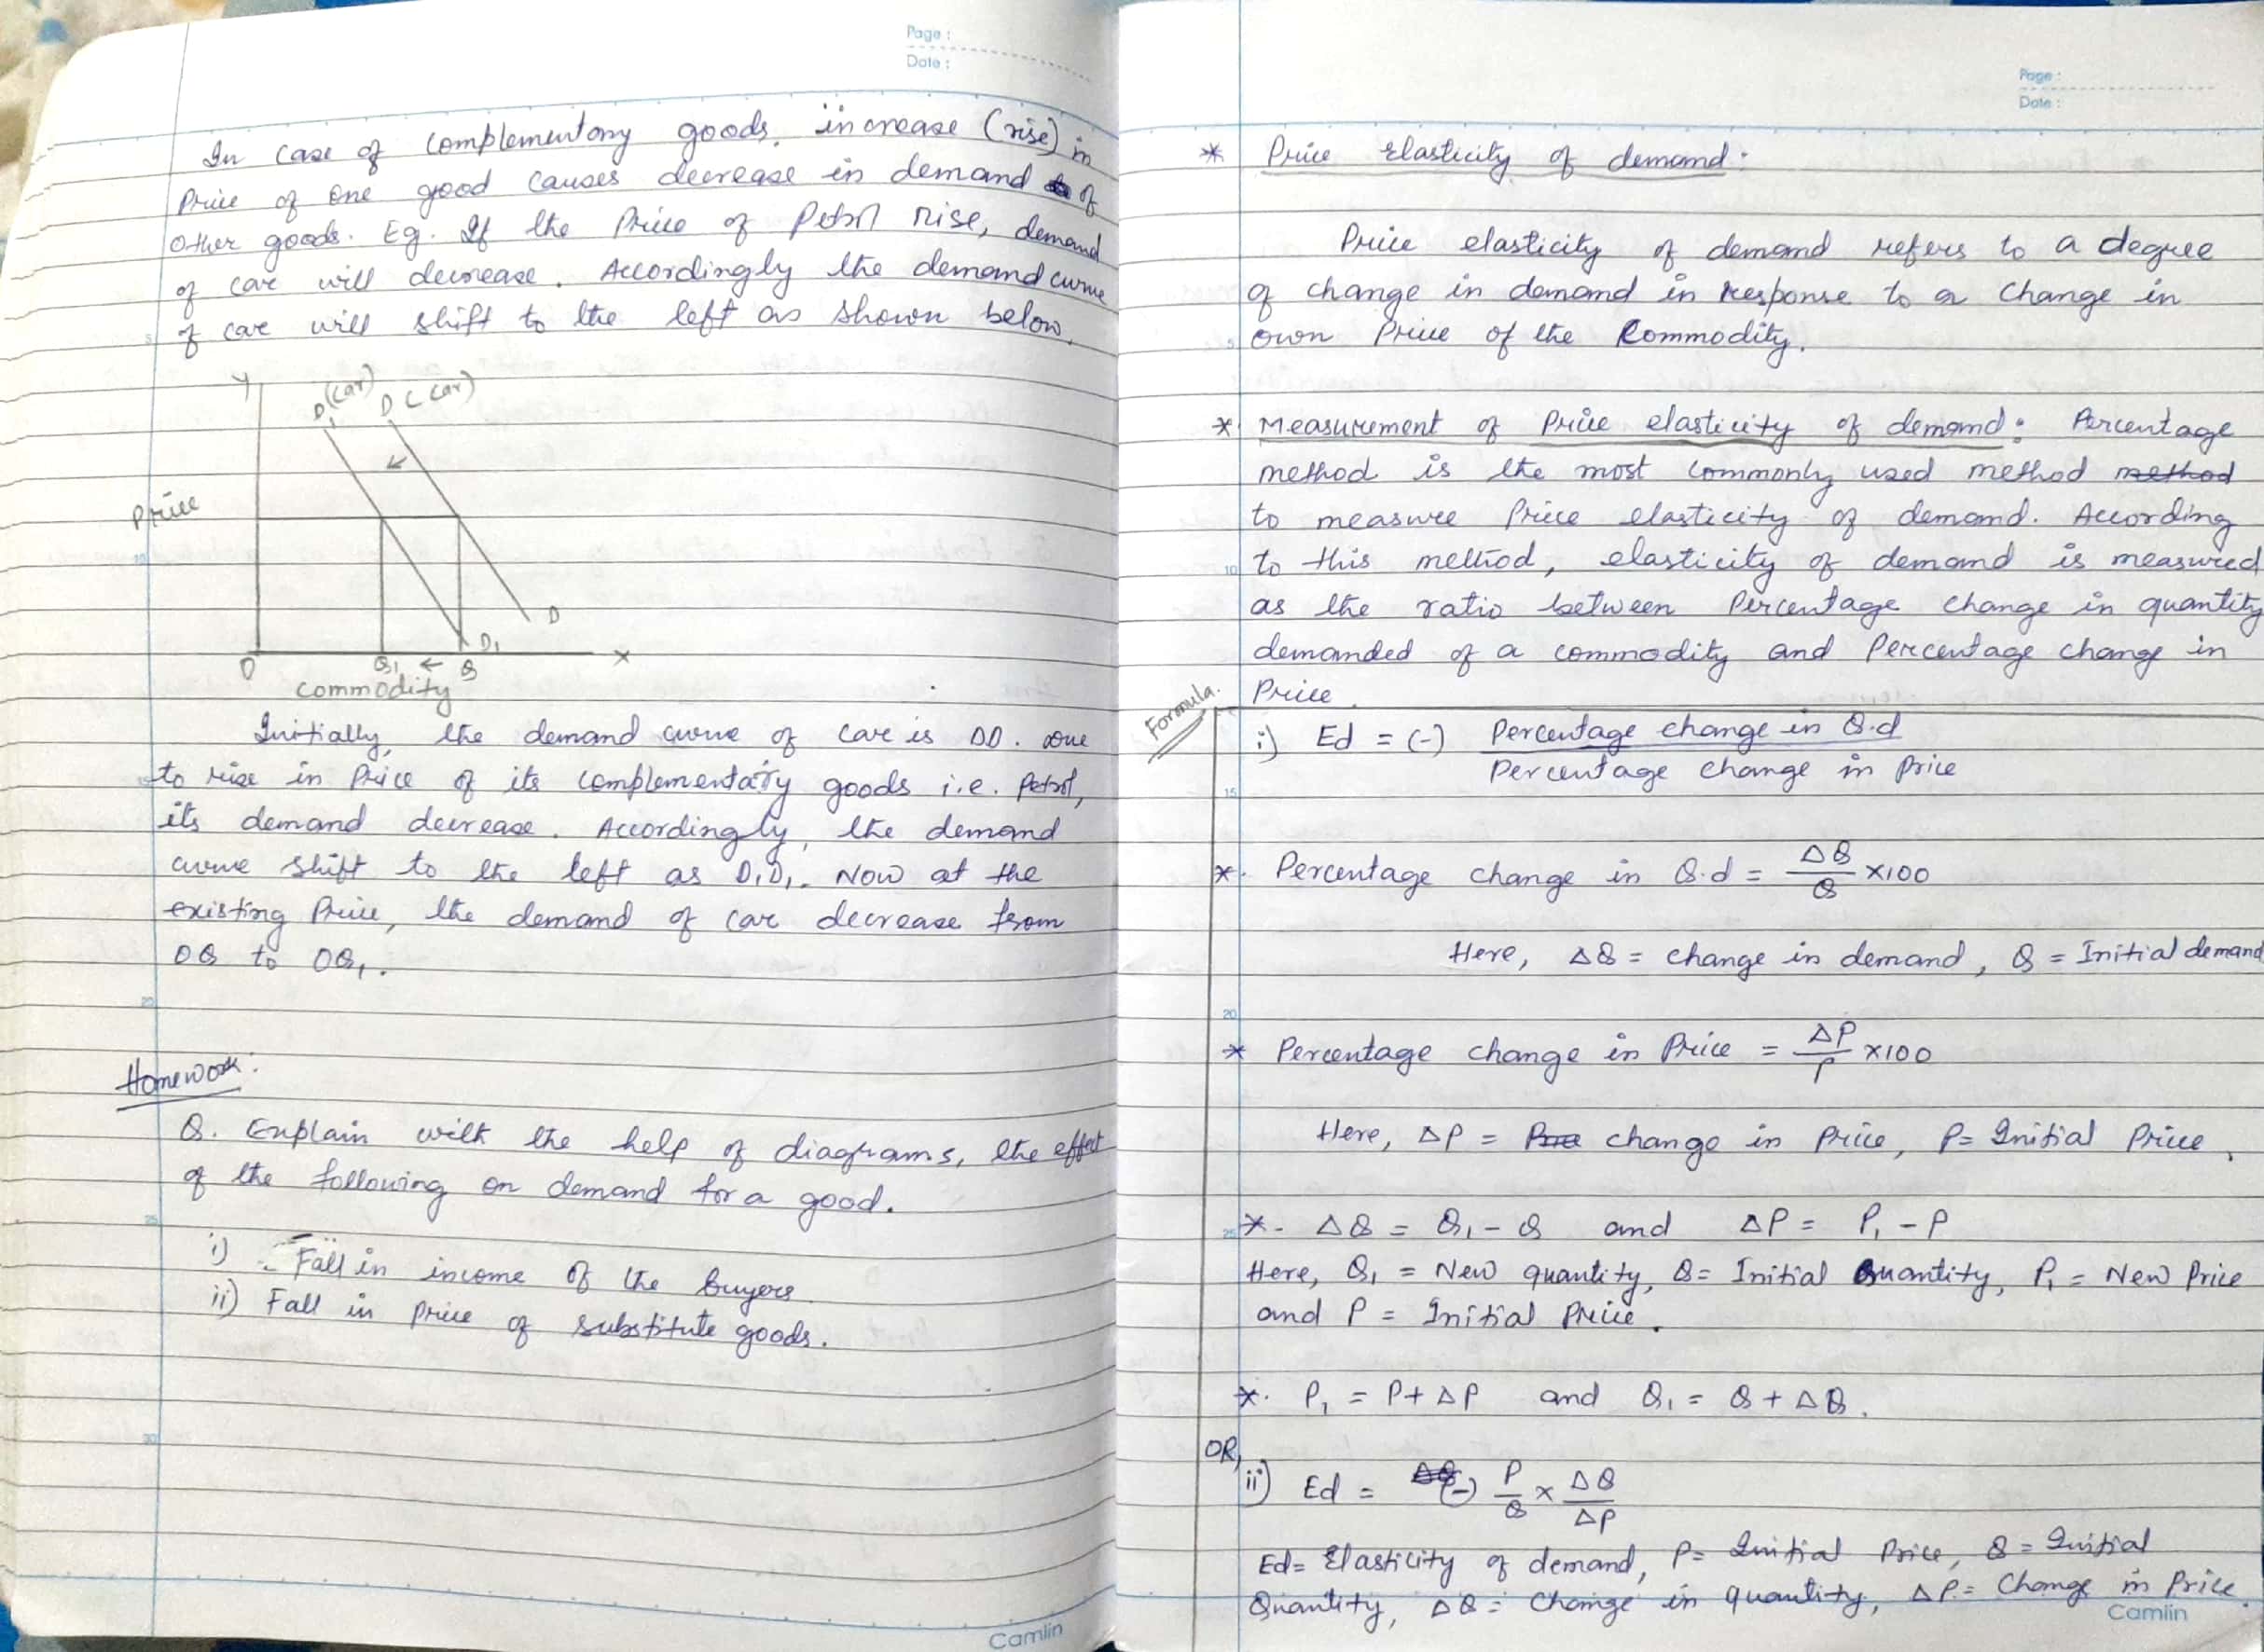 Page :
Date :
In case of complementary goods, increase (rise) in
Price of one good causes decrease in demand of
other goods. Eg. If the Price of Petrol rise, demand
of car will decrease. Accordingly the demand curve
of car will shift to the left as shown below.
Y
D₁(car) D (car)
Price
D
D₁
O Q₁ ← Q X
commodity
Initially, the demand curve of car is DD. Due
to rise in Price of its complementary goods i.e. Petrol,
its demand decrease. Accordingly, the demand
curve shift to the left as D₁D₁. Now at the
existing Price, the demand of car decrease from
OQ to OQ₁.
Homework:
Q. Explain with the help of diagrams, the effect
of the following on demand for a good.
i) Fall in income of the buyers
ii) Fall in price of substitute goods.
5
10
15
20
25
30
Camlin
Page :
Date :
* Price elasticity of demand:
Price elasticity of demand refers to a degree
of change in demand in response to a change in
own Price of the Commodity.
* Measurement of Price elasticity of demand: Percentage
method is the most commonly used method method
to measure Price elasticity of demand. According
to this method, elasticity of demand is measured
as the ratio between Percentage change in quantity
demanded of a commodity and Percentage change in
Price.
Formula.
i) Ed = (-) Percentage change in Q.d
Percentage change in price
*. Percentage change in Q.d = ΔQ/Q ×100
Here, ΔQ = change in demand, Q = Initial demand
* Percentage change in Price = ΔP/P ×100
Here, ΔP = change in price, P = Initial Price.
*. ΔQ = Q₁ - Q and ΔP = P₁ - P
Here, Q₁ = New quantity, Q = Initial Quantity, P₁ = New Price
and P = Initial Price.
*. P₁ = P + ΔP and Q₁ = Q + ΔQ.
OR,
ii) Ed = (-) P/Q × ΔQ/ΔP
Ed = Elasticity of demand, P = Initial Price, Q = Initial
Quantity, ΔQ = Change in quantity, ΔP = Change in Price.
5
10
15
20
25
Camlin